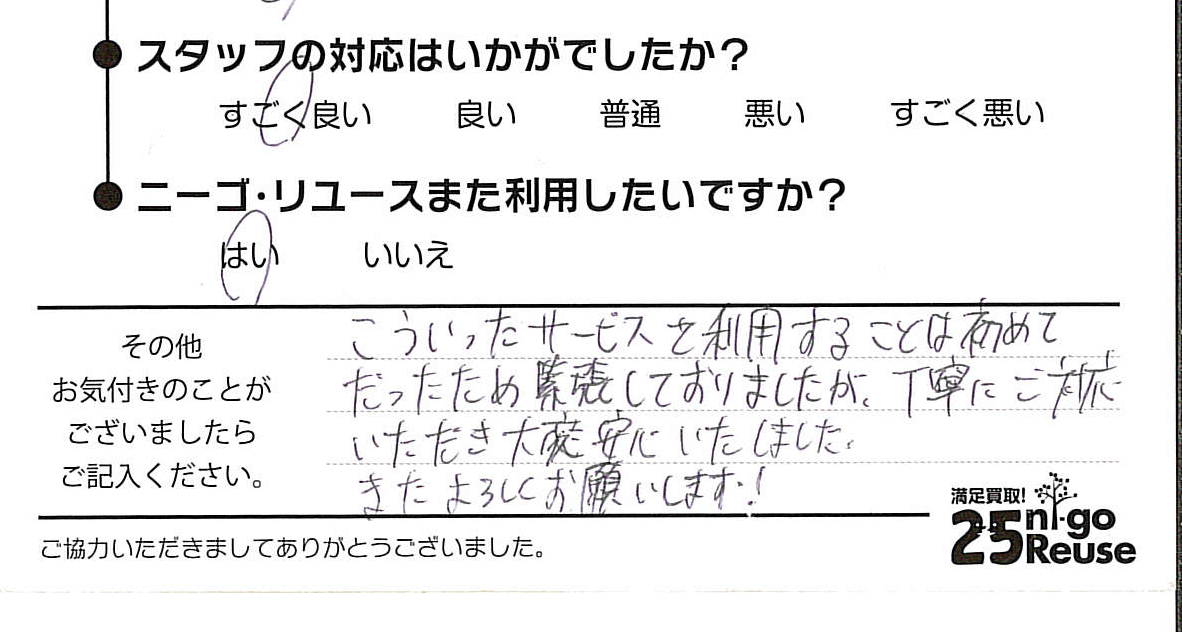 スタッフの対応はいかがでしたか?
すごく良い 良い 普通 悪い すごく悪い
ニーゴ・リユースまた利用したいですか?
はい いいえ
その他
お気付きのことが
ございましたら
ご記入ください。
こういったサービスを利用することは初めて
だったため緊張しておりましたが、丁寧にご対応
いただき大変安心いたしました。
またよろしくお願いします!
満足買取!
25 ni-go
Reuse
ご協力いただきましてありがとうございました。